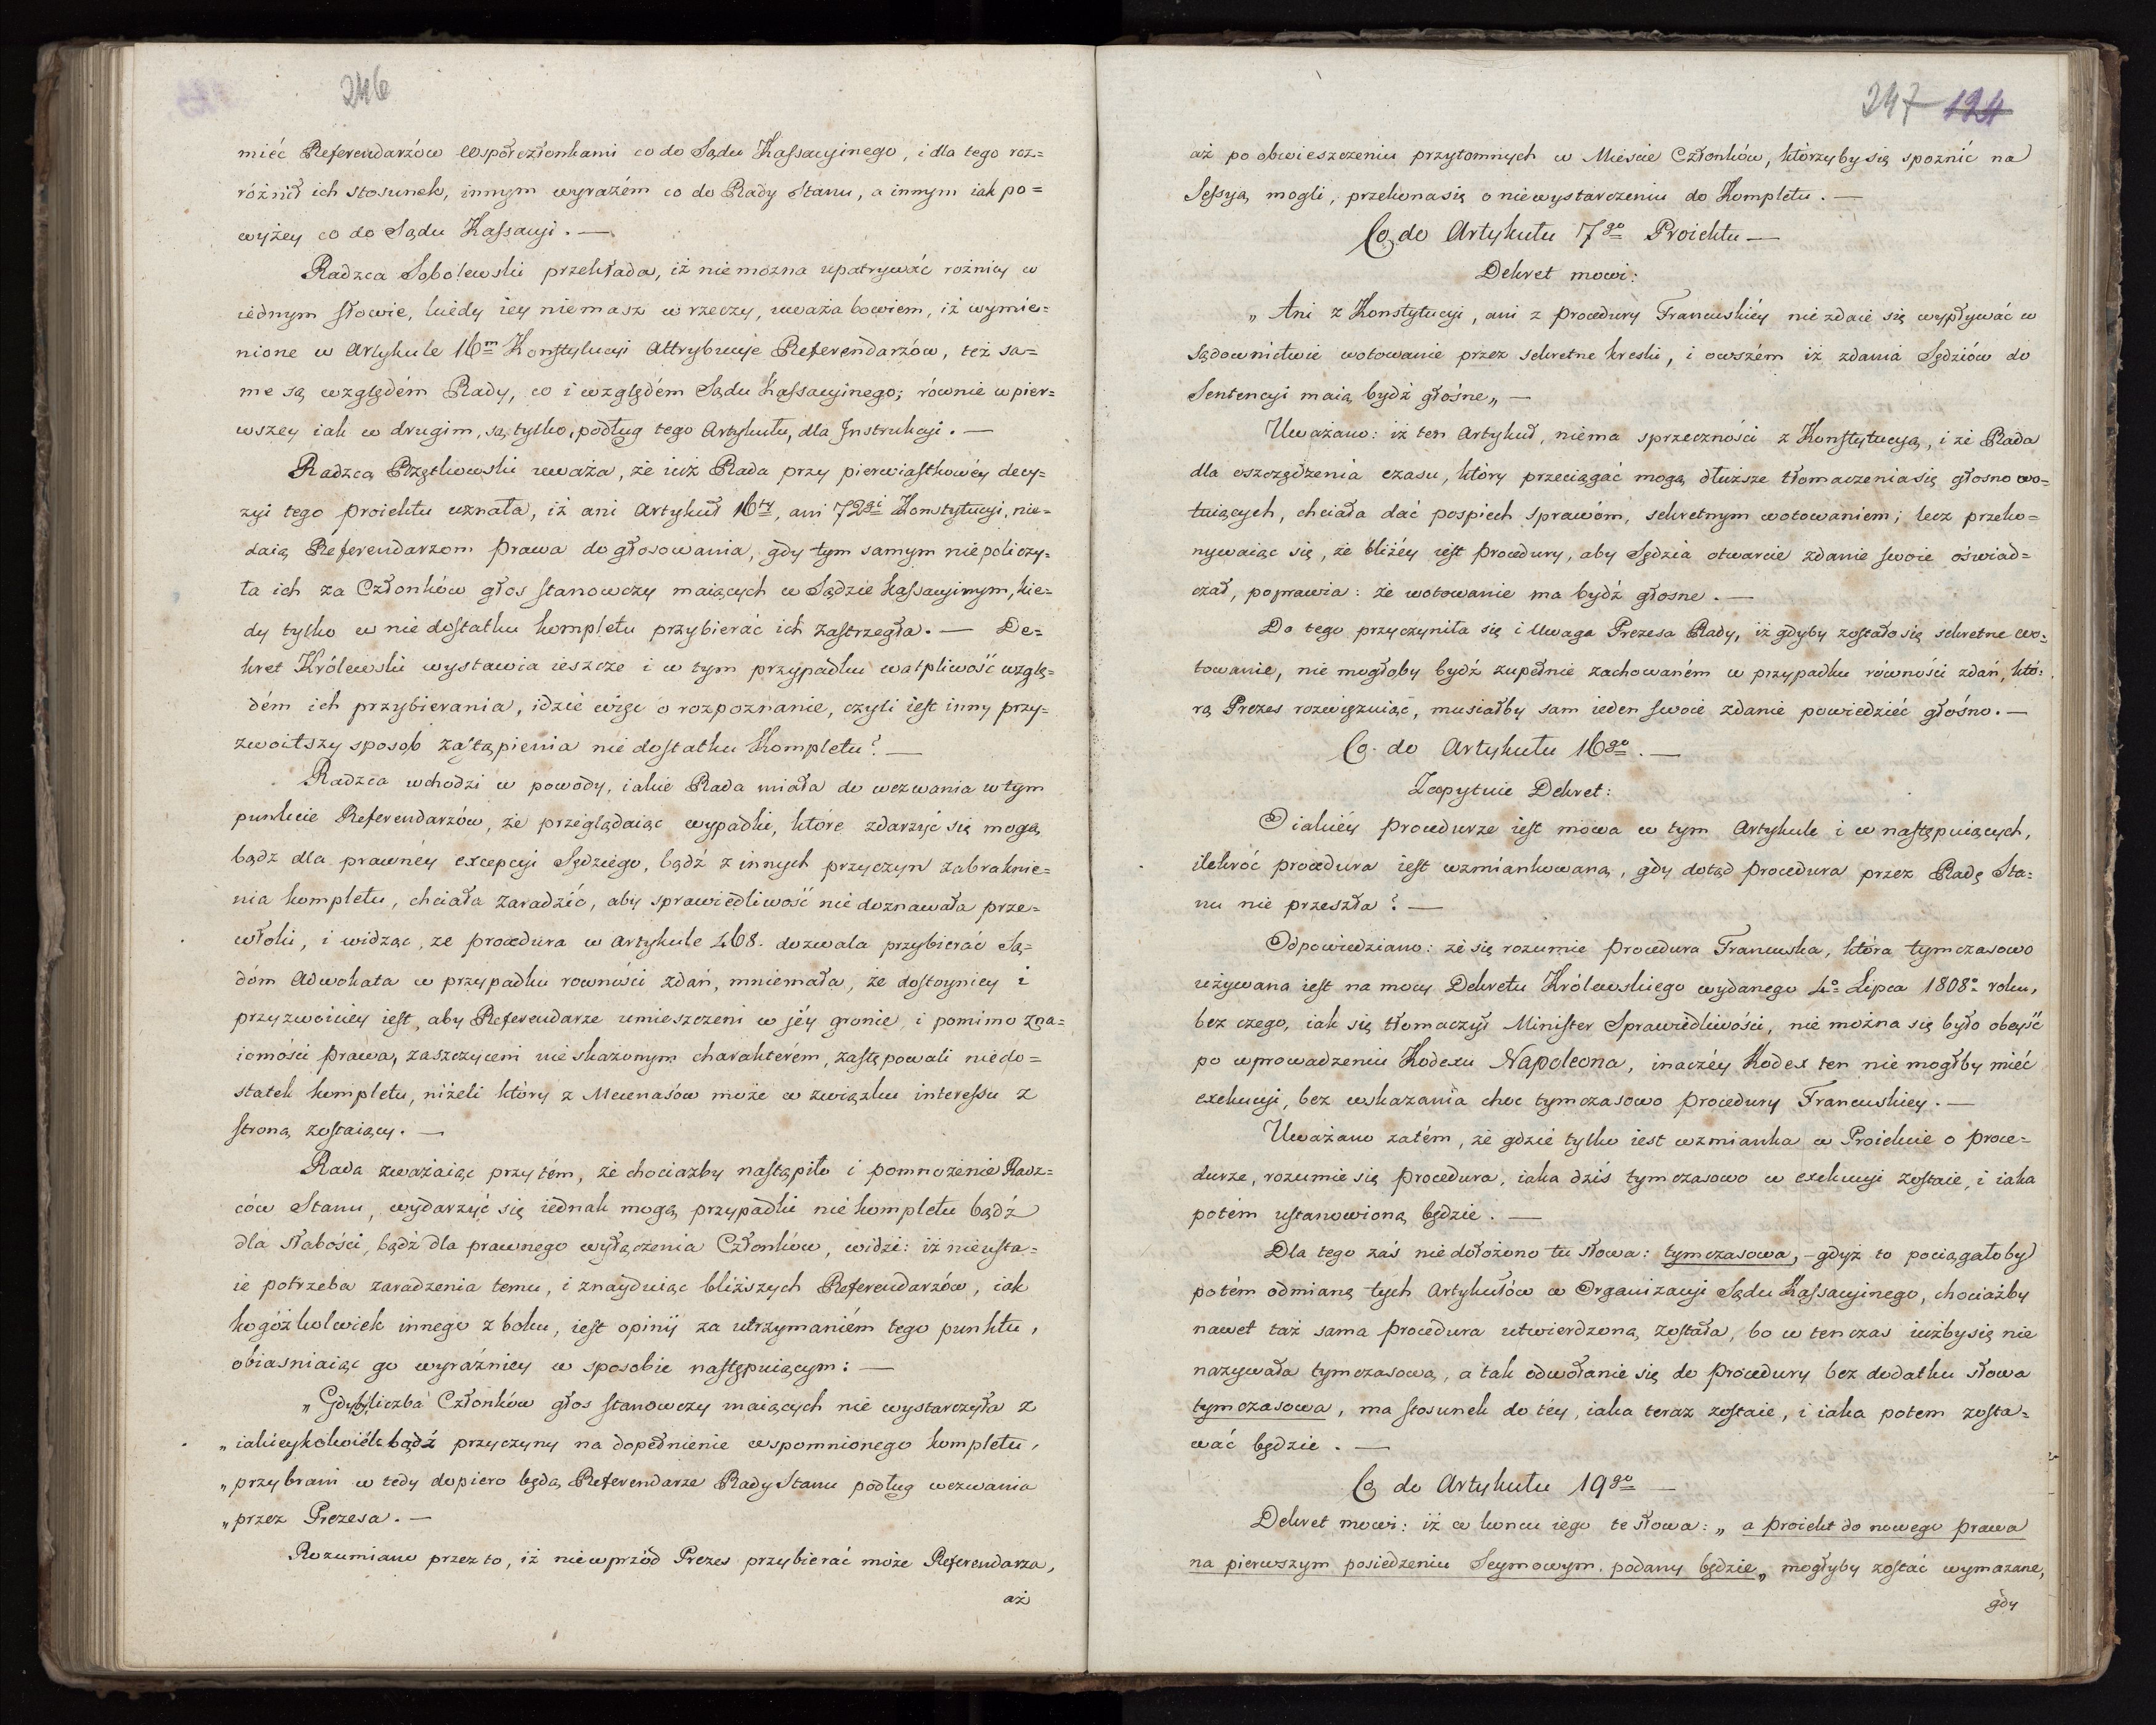 246
mieć Referendarzów Współczłonkami co do Sądu Kassacyinego, i dla tego roz=
różnił ich stosunek, innym wyrazém co do Rady Stanu, a innym iak po=
wyżey co do Sądu Kassacyi. —
Radzca Sobolewski przekłada, iż nie można upatrywać rożnicy w
iednym słowie, kiedy iey niemasz w rzeczy, uważa bowiem, iż wymie=
nione w Artykule 16m Konstytucyi Attrybucye Referendarzów, też sa=
me są względém Rady, co i względém Sądu Kassacyinego; równie w pier=
wszey iak w drugim, są tylko, podług tego Artykułu, dla Instrukcyi. —
Radzca uważa, że iuż Rada przy pierwiastkowéy decy=
zyi tego proiektu uznała, iż ani Artykuł 16ty, ani 72gi Konstytucyi, nie=
daią Referendarzom prawa do głosowania, gdy tym samym nie policzy=
ła ich za Członków głos stanowczy maiących w Sądzie Kassacyinym, kie=
dy tylko w niedostatku kompletu przybierać ich zastrzegła. — De=
kret Królewski wystawia ieszcze i w tym przypadku wątpliwość wzglę=
dém ich przybierania, idzie więc o rozpoznanie, czyli iest inny przy=
zwoitszy sposob zastąpienia niedostatku Kompletu? —
Radzca wchodzi w powody, iakie Rada miała do wezwania w tym
punkcie Referendarzów, że przeglądaiąc wypadki, które zdarzyć się mogą
bądz dla prawnéy excepcyi Sędziego, bądź z innych przyczyn zabraknie=
nia kompletu, chciała zaradzić, aby sprawiedliwość nie doznawała prze=
włoki, i widząc, ze procedura w artykule 468. dozwala przybierać Są=
dóm Adwokata w przypadku rowności zdań, mniemała, że dostoyniey i
przyzwoiciey iest, aby Referendarze umieszczeni w jéy gronie, i pomimo zna=
iomości prawa, zaszczyceni nieskażonym charakterém, zastępowali niedo=
statek kompletu, niżeli który z Mecenasów może w związku interessu z
stroną zostaiący. —
Rada zważaiąc przytém, że chociażby nastąpiło i pomnożenie Radz=
ców Stanu, wydarzyć się iednak mogą przypadki niekompletu bądź
dla słabości, bądź dla prawnego wyłączenia Członków, widzi: iż nieusta=
ie potrzeba zaradzenia temu, i znayduiąc bliższych Referendarzów, iak
kogóżkolwiek innego z boku, iest opinij za utrzymaniém tego punktu,
obiasniaiąc go wyraźniey w sposobie następuiącym: —
„Gdyby liczba Członków głos stanowczy maiących nie wystarczyła z
„iakieykolwiek bądź przyczyny na dopełnienie wspomnionego kompletu,
„przybrani w tedy dopiero będą Referendarze Rady Stanu podług wezwania
„przez Prezesa. —
Rozumiano przez to, iż niewprzód Prezes przybierać może Referendarza,
aż
247 124
aż po obwieszczeniu przytomnych w Mieście Członków, którzyby się spoznić na
Sessyą mogli, przekona się o niewystarczeniu do Kompletu. —
Co do Artykułu 7go Proiektu —
Dekret mowi:
„Ani z Konstytucyi, ani z procedury Francuskiéy nie zdaie się wypływać w
sądownictwie wotowanie przez sekretne kreski, i owszém iż zdania Sędziów do
Sentencyi maią bydź głośne„ —
Uważano: iż ten Artykuł, niema sprzeczności z Konstytucyą, i że Rada
dla oszczędzenia czasu, który przeciągać mogą dłuższe tłomaczenia się głosno wo=
tuiących, chciała dać pospiech sprawóm, sekretnym wotowaniem; lecz przeko=
nywaiąc się, że bliżéy iest procedury, aby Sędzia otwarcie zdanie swoie oświad=
czał, poprawia: że wotowanie ma bydź głosne. —
Do tego przyczyniła się i Uwaga Prezesa Rady, iż gdyby zostało się sekretne wo=
towanie, nie mogłoby bydź zupełnie zachowaném w przypadku równości zdań, któ=
rą Prezes rozwięzuiąc, musiałby sam ieden swoie zdanie powiedzieć głośno. —
Co do Artykułu 16go. —
Zapytuie Dekret:
O iakiéy procedurze iest mowa w tym Artykule i w następuiących,
ilekróć procedura iest wzmiankowaną, gdy dotąd procedura przez Radę Sta=
nu nie przeszła? —
Odpowiedziano: że się rozumie procedura Francuska, która tymczasowo
używana iest na mocy Dekretu Królewskiego wydanego 4o Lipca 1808o roku,
bez czego, iak się tłomaczył Minister Sprawiedliwości, nie można się było obeyść
po wprowadzeniu Kodexu Napoleona, inaczéy Kodex ten nie mogłby mieć
exekucyi, bez wskazania choc tymczasowo procedury Francuskiey. —
Uważano zatém, że gdzie tylko iest wzmianka w Proiekcie o proce=
durze, rozumie się procedura, iaka dziś tymczasowo w exekucyi zostaie, i iaka
potém ustanowioną będzie. —
Dla tego zaś niedołożono tu słowa: tymczasowa, – gdyż to pociągałoby
potém odmianą tych Artykułów w Organizacyi Sądu Kassacyinego, chociażby
nawet taż sama procedura utwierdzoną została, bo w ten czas iużby się nie
nazywała tymczasową, a tak odwołanie się do procedury bez dodatku słowa
tymczasowa, ma stosunek do téy, iaka teraz zostaie, i iaka potem zosta=
wać będzie. —
Co do Artykułu 19go —
Dekret mowi: iż w koncu iego te słowa: „a proiekt do nowego prawa
na pierwszym posiedzeniu Seymowym podany będzie„ mogłyby zostać wymazane,
gdy